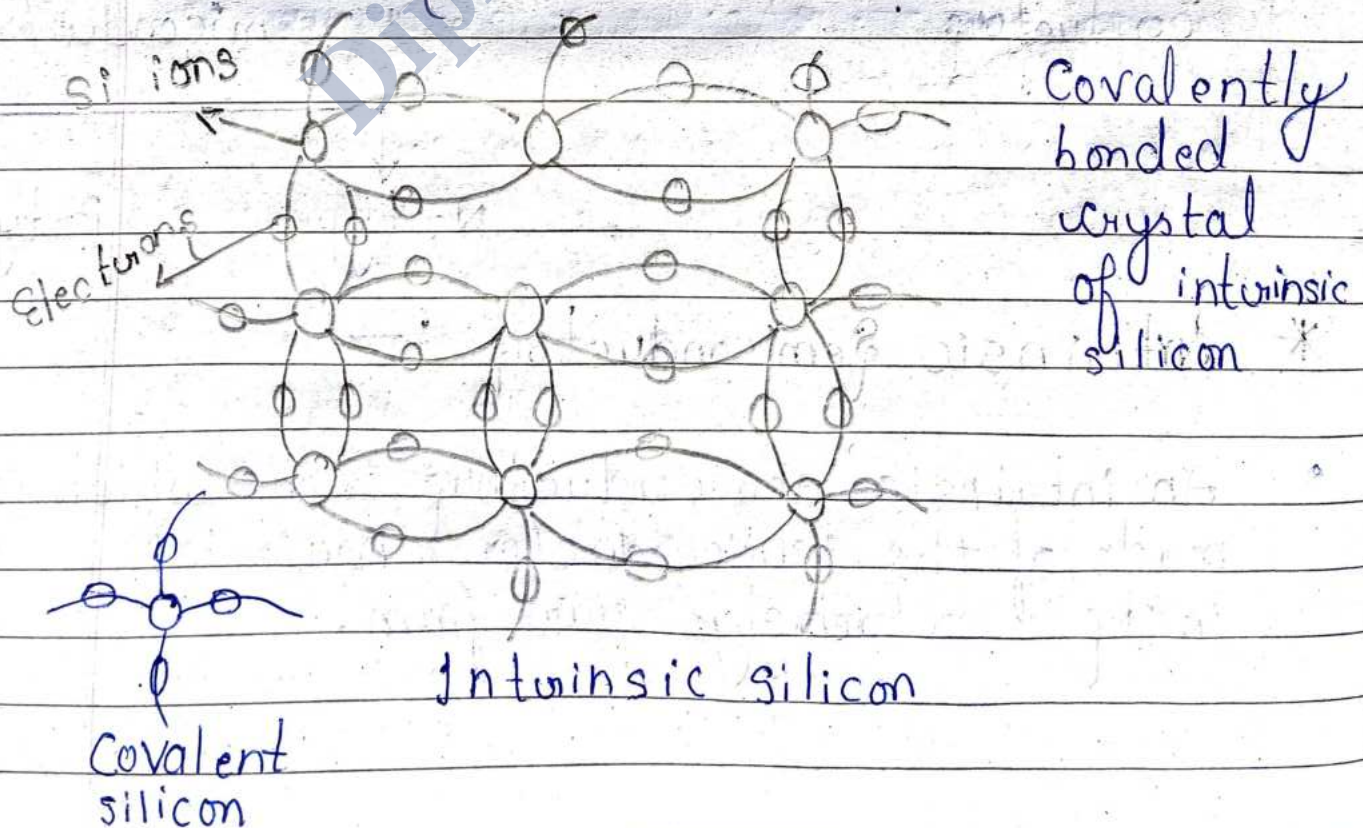 Dip
Si ions
Electrons
Covalently
bonded
crystal
of intrinsic
silicon
Intrinsic silicon
Covalent
silicon